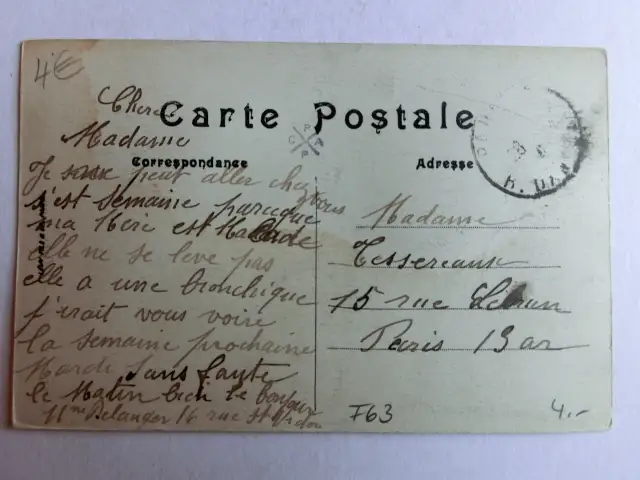 4€
Carte Postale
Correspondance
Adresse
Chere
Madame
Je peut aller chez vous
s'est semaine parceque
ma Mère est Malade
elle ne se leve pas
elle a une bronchique
j'irait vous voire
la semaine prochaine
Mardi Sans faute
le Matin bien le bonjour
Belanger 16 rue
Madame
Tessereaux
15 rue Lebrun
Paris 13 ar
F63
4.-